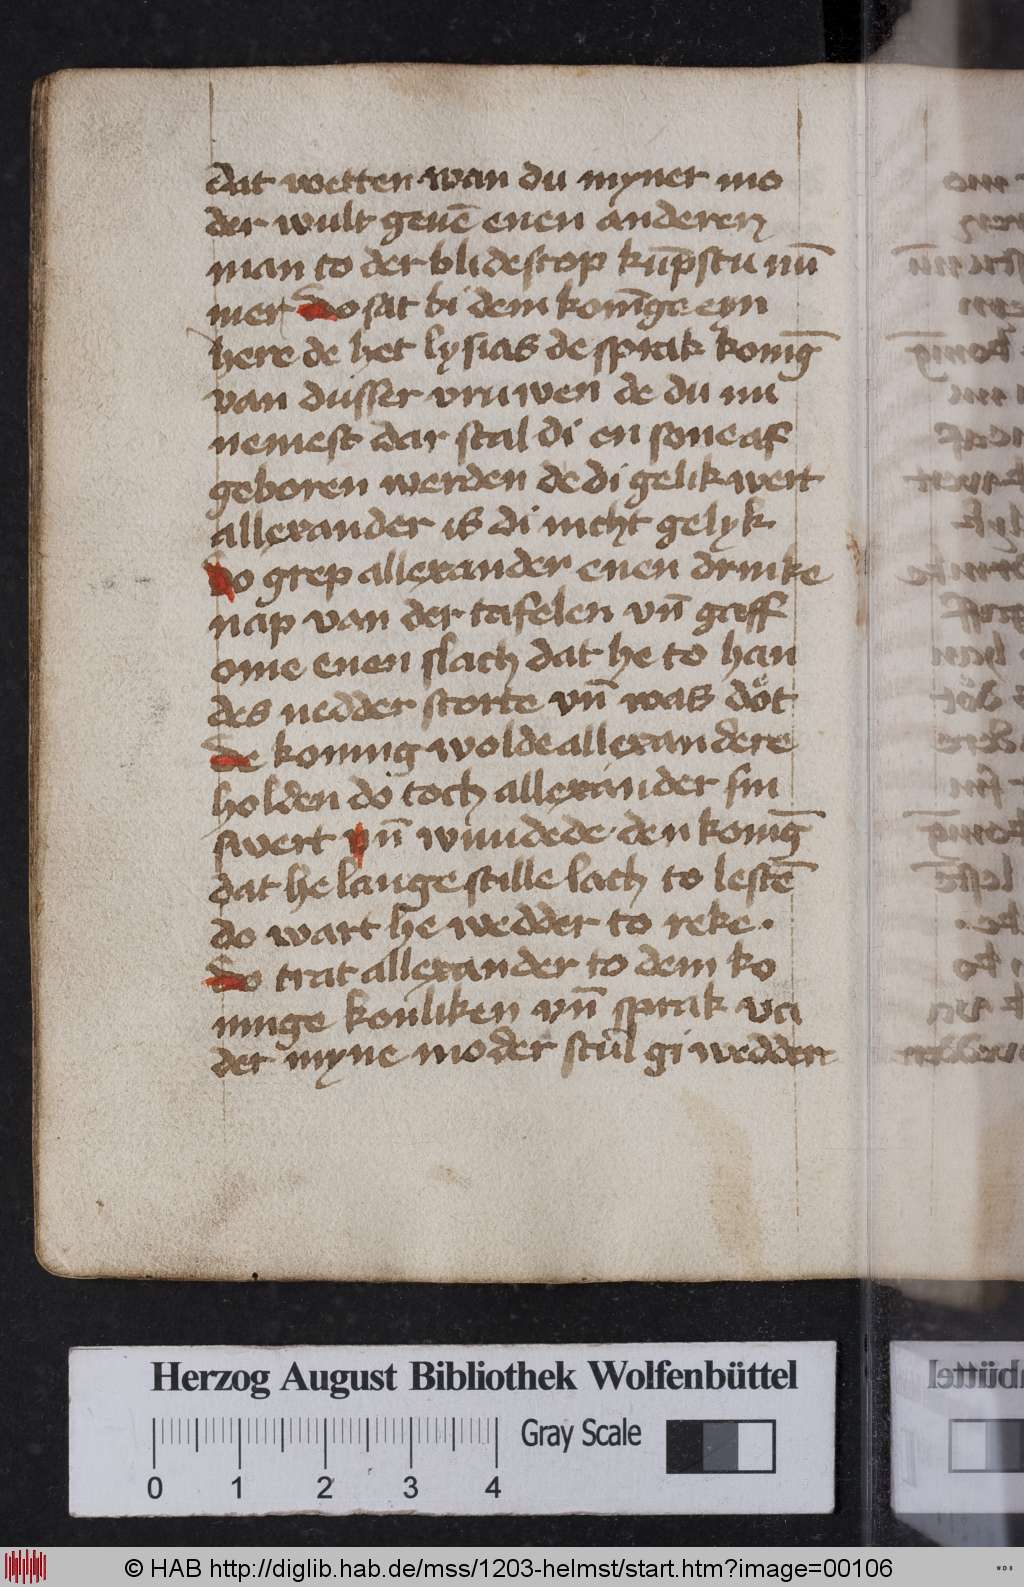 dat wetten wan du myner mo
der wult geuē enen anderen
man to der blidescop kūpstu nū
mer do sat bi dem konīge eyn
here de het lysias de sprak konīg
van dusser vruwen de du nu
nemest dar scal di en sone af
geboren werden de di gelik wert
allexander is di nicht gelyk
do grep allexander enen drinke
nap van der tafelen vn̄ gaff
ome enen slach dat he to han
des nedder storte vn̄ was dot
de koning wolde allexandere
holden do toch allexander sin
swert vn̄ wundede den konīg
dat he lange stille lach to lestē
do wart he wedder to reke .
do trat allexander to dem ko
ninge konliken vn̄ sprak va
der myne moder scul gi wedder
Herzog August Bibliothek Wolfenbüttel
Gray Scale
0 1 2 3 4
© HAB http://diglib.hab.de/mss/1203-helmst/start.htm?image=00106